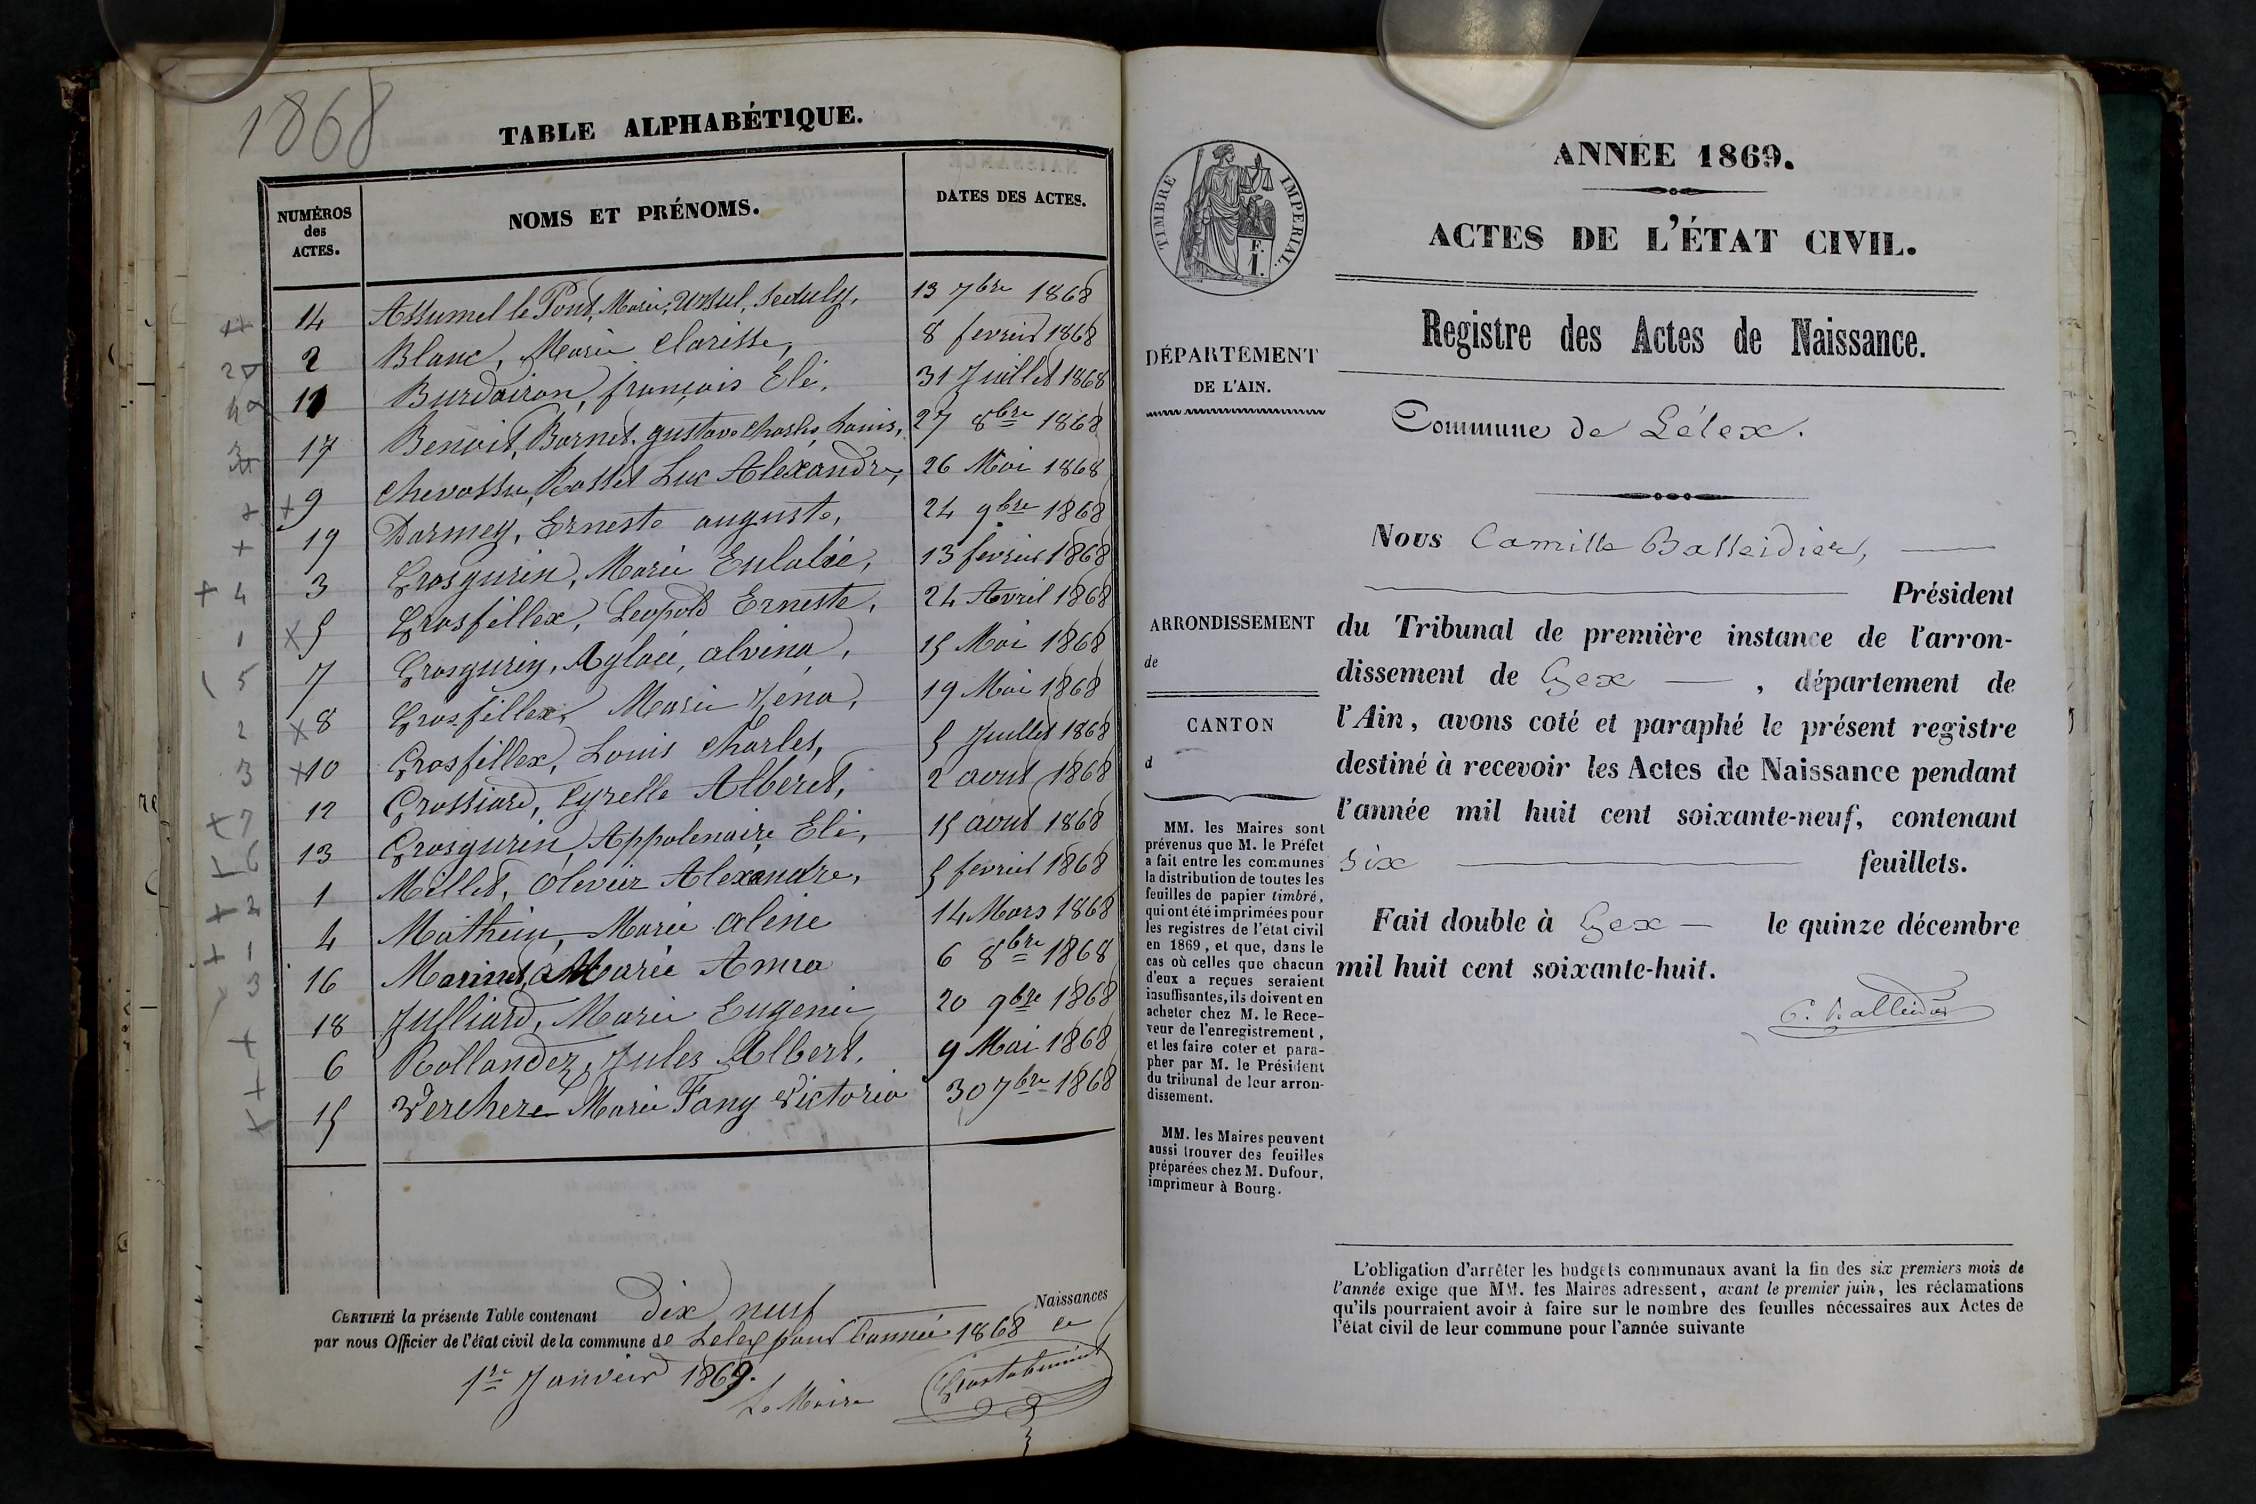 1868
TABLE ALPHABÉTIQUE.
NUMÉROS des ACTES. NOMS ET PRÉNOMS. DATES DES ACTES.
14 Assumel le Pont, Marie, Ursul, Seduly, 13 7bre 1868
2 Blanc, Marie Clarisse, 8 fevrier 1868
11 Burdairon, françois Elé, 31 Juillet 1868
17 Benoit, Barnet. gustave Charles Louis, 27 8bre 1868
9 Chevassu, Rosset Luc Alexandre, 26 Mai 1868
19 Darmey, Erneste auguste, 24 9bre 1868
3 Grosgurin, Marie Eulalie, 13 fevrier 1868
5 Grosfillex, Leopold Erneste, 24 Avril 1868
7 Grosgurin, Aglaé, alvina, 15 Mai 1868
8 Grosfillex, Marie Zéna, 19 Mai 1868
10 Grosfillex, Louis Charles, 5 Juillet 1868
12 Grossiord, Cyrelle Alberet, 2 aout 1868
13 Grosgurin Appolenaire Elé, 15 aout 1868
1 Millet, Olevier Alexandre, 5 fevrier 1868
4 Mathieu, Marie aline 14 Mars 1868
16 Marinet, Marie Anna 6 8bre 1868
18 Julliard, Marie Eugenie 20 9bre 1868
6 Rollandez, Jules Albert. 9 Mai 1868
15 Verchere Marie Fany Victoria 30 7bre 1868
CERTIFIÉ la présente Table contenant Dix neuf Naissances
par nous Officier de l'état civil de la commune de Lelex pour l'année 1868 ce
1er Janvier 1869.
Le Maire
TIMBRE IMPERIAL.
F. 1.
ANNÉE 1869.
ACTES DE L'ÉTAT CIVIL.
Registre des Actes de Naissance.
DÉPARTEMENT
DE L'AIN.
Commune de Lélex.
Nous Camille Balleidier,
Président
du Tribunal de première instance de l'arron-
dissement de Gex, département de
l'Ain, avons coté et paraphé le présent registre
destiné à recevoir les Actes de Naissance pendant
l'année mil huit cent soixante-neuf, contenant
six feuillets.
Fait double à Gex le quinze décembre
mil huit cent soixante-huit.
C. Balleidier
ARRONDISSEMENT
de
CANTON
d
MM. les Maires sont
prévenus que M. le Préfet
a fait entre les communes
la distribution de toutes les
feuilles de papier timbré,
qui ont été imprimées pour
les registres de l'état civil
en 1869, et que, dans le
cas où celles que chacun
d'eux a reçues seraient
insuffisantes, ils doivent en
acheter chez M. le Rece-
veur de l'enregistrement,
et les faire coter et para-
pher par M. le Président
du tribunal de leur arron-
dissement.
MM. les Maires peuvent
aussi trouver des feuilles
préparées chez M. Dufour,
imprimeur à Bourg.
L'obligation d'arrêter les budgets communaux avant la fin des six premiers mois de
l'année exige que MM. les Maires adressent, avant le premier juin, les réclamations
qu'ils pourraient avoir à faire sur le nombre des feuilles nécessaires aux Actes de
l'état civil de leur commune pour l'année suivante